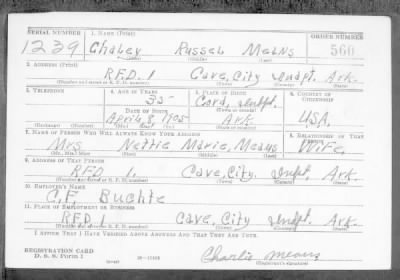 SERIAL NUMBER 1. NAME (Print) ORDER NUMBER
1239 Chaley Russel Means 560
(First) (Middle) (Last)
2. ADDRESS (Print)
RFD. 1 Cave, City Indpt. Ark.
(Number and street or R. F. D. number) (Town) (County) (State)
3. TELEPHONE 4. AGE IN YEARS 5. PLACE OF BIRTH 6. COUNTRY OF CITIZENSHIP
35 Cord, Indpt.
DATE OF BIRTH (Town or county)
April, 8, 1905 Ark. USA.
(Exchange) (No.) (Mo.) (Day) (Yr.) (State or country)
7. NAME OF PERSON WHO WILL ALWAYS KNOW YOUR ADDRESS 8. RELATIONSHIP OF THAT PERSON
Mrs Nettie Marie, Means Wife.
(Mr., Mrs., Miss) (First) (Middle) (Last)
9. ADDRESS OF THAT PERSON
RFD 1. Cave, City. Indpt Ark.
(Number and street or R. F. D. number) (Town) (County) (State)
10. EMPLOYER'S NAME
C.F. Buchte
11. PLACE OF EMPLOYMENT OR BUSINESS
RFD 1 Cave, City Indpt. Ark.
(Number and street or R. F. D. number) (Town) (County) (State)
I AFFIRM THAT I HAVE VERIFIED ABOVE ANSWERS AND THAT THEY ARE TRUE.
REGISTRATION CARD
D. S. S. Form 1 Charlie means
(Registrant's signature)